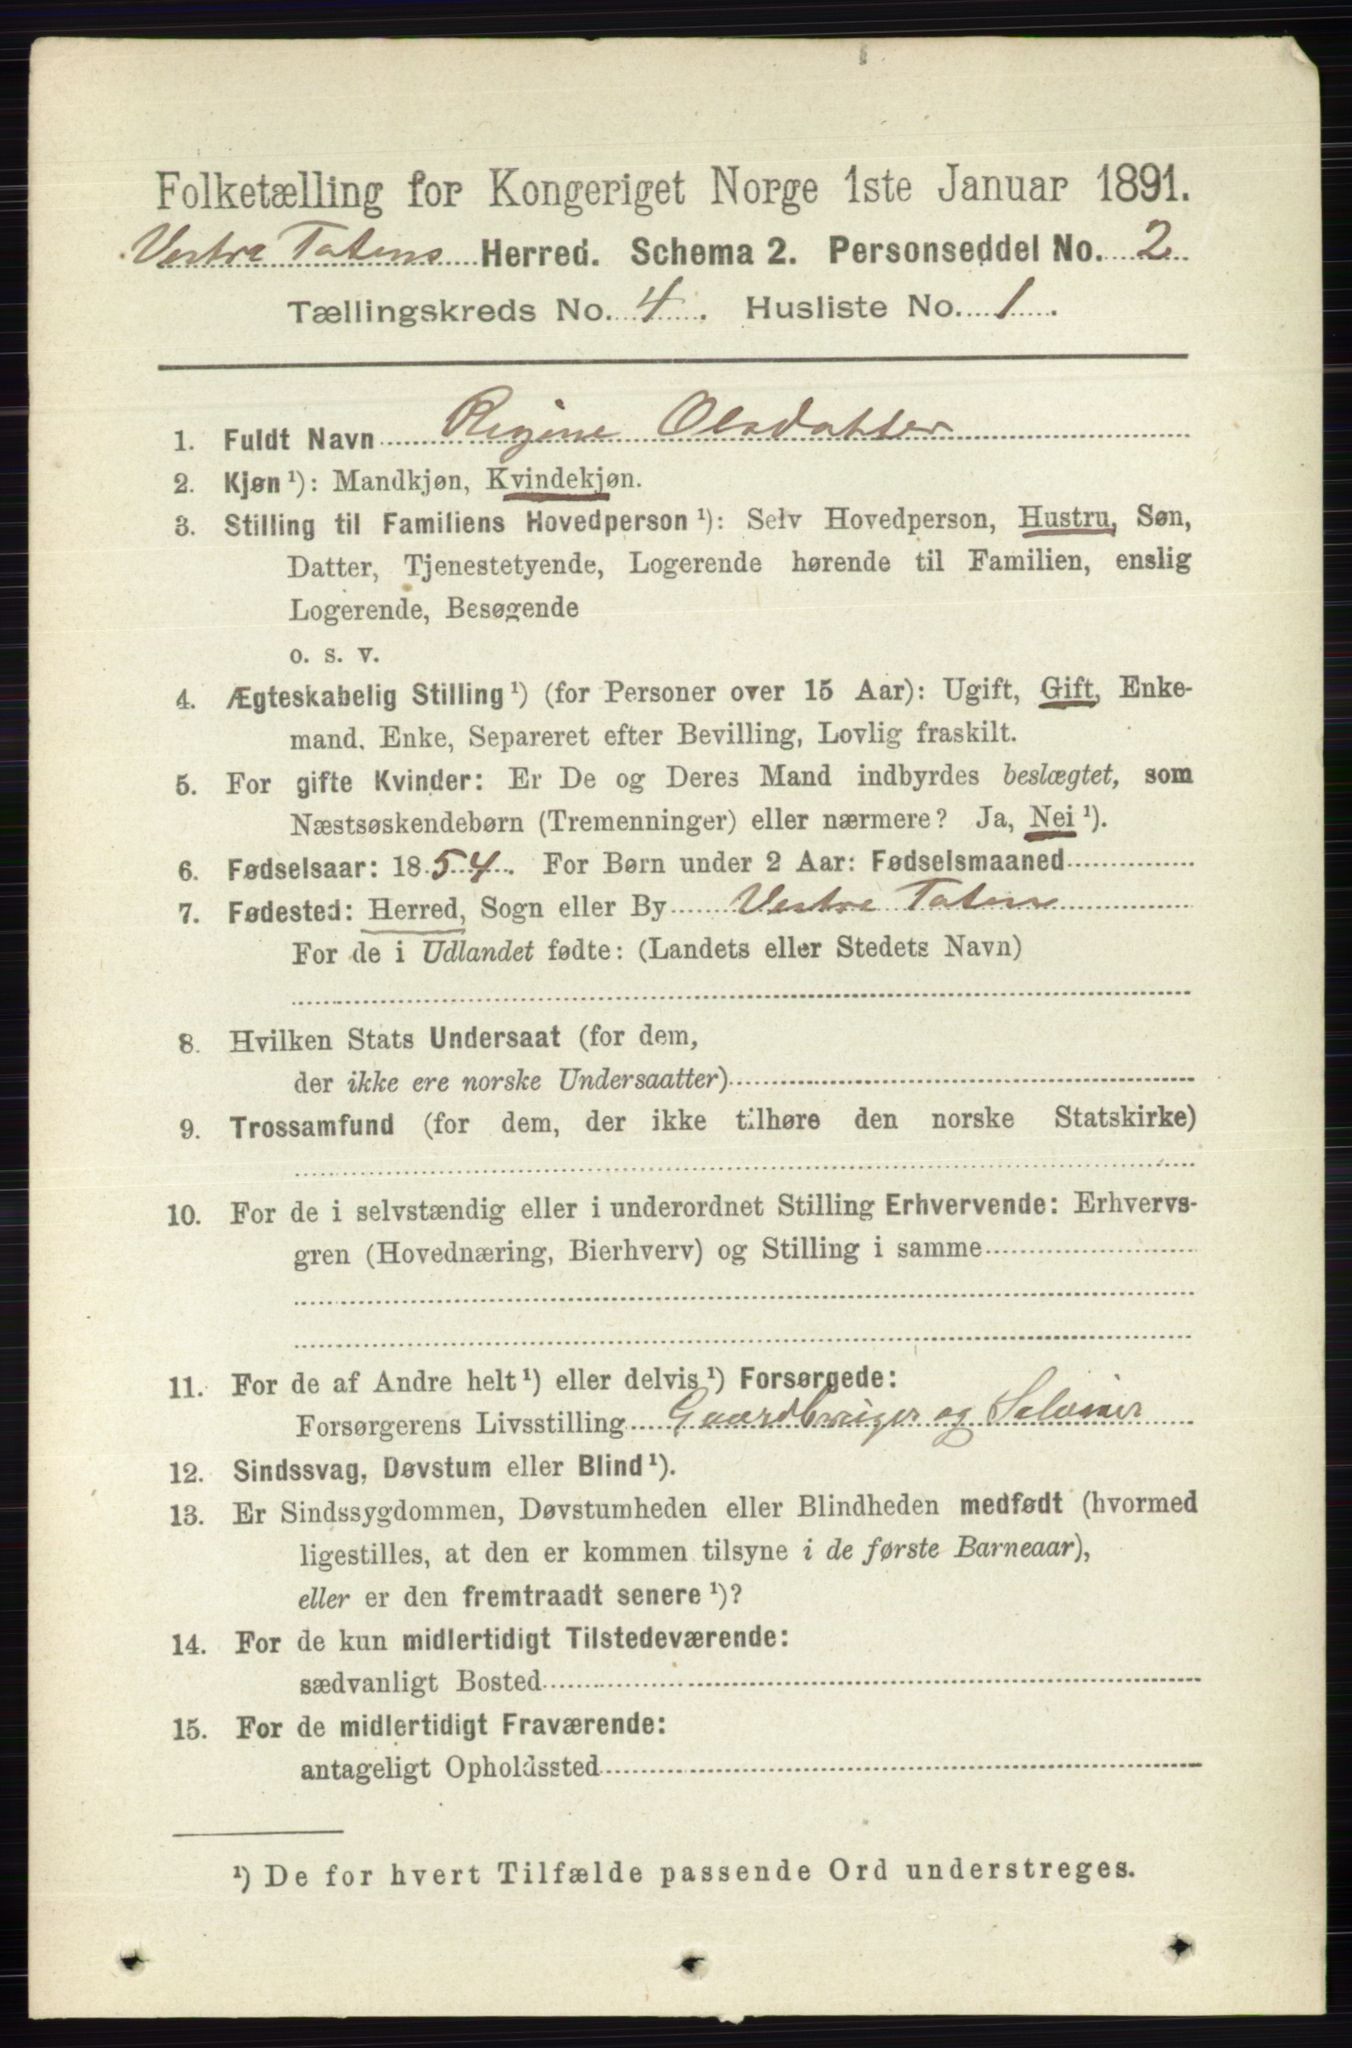 Folketælling for Kongeriget Norge 1ste Januar 1891.
Vestre Totens Herred. Schema 2. Personseddel No. 2
Tællingskreds No. 4. Husliste No. 1.
1. Fuldt Navn Regine Olsdatter
2. Kjøn ¹): Mandkjøn, Kvindekjøn.
3. Stilling til Familiens Hovedperson ¹): Selv Hovedperson, Hustru, Søn,
Datter, Tjenestetyende, Logerende hørende til Familien, enslig
Logerende, Besøgende
o. s. v.
4. Ægteskabelig Stilling ¹) (for Personer over 15 Aar): Ugift, Gift, Enke-
mand, Enke, Separeret efter Bevilling, Lovlig fraskilt.
5. For gifte Kvinder: Er De og Deres Mand indbyrdes beslægtet, som
Næstsøskendebørn (Tremenninger) eller nærmere? Ja, Nei ¹).
6. Fødselsaar: 1854. For Børn under 2 Aar: Fødselsmaaned
7. Fødested: Herred, Sogn eller By Vestre Toten
For de i Udlandet fødte: (Landets eller Stedets Navn)
8. Hvilken Stats Undersaat (for dem,
der ikke ere norske Undersaatter)
9. Trossamfund (for dem, der ikke tilhøre den norske Statskirke)
10. For de i selvstændig eller i underordnet Stilling Erhvervende: Erhvervs-
gren (Hovednæring, Bierhverv) og Stilling i samme
11. For de af Andre helt ¹) eller delvis ¹) Forsørgede:
Forsørgerens Livsstilling Gaardbruger og
12. Sindssvag, Døvstum eller Blind ¹).
13. Er Sindssygdommen, Døvstumheden eller Blindheden medfødt (hvormed
ligestilles, at den er kommen tilsyne i de første Barneaar),
eller er den fremtraadt senere ¹)?
14. For de kun midlertidigt Tilstedeværende:
sædvanligt Bosted
15. For de midlertidigt Fraværende:
antageligt Opholdssted
¹) De for hvert Tilfælde passende Ord understreges.